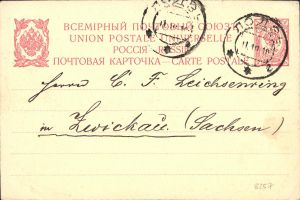 ВСЕМІРНЫЙ ПОЧТОВЫЙ СОЮЗЪ
UNION POSTALE UNIVERSELLE
РОССІЯ RUSSIE
ПОЧТОВАЯ КАРТОЧКА CARTE POSTALE
Herrn C. F. Leichsenring
in Zwickau (Sachsen)